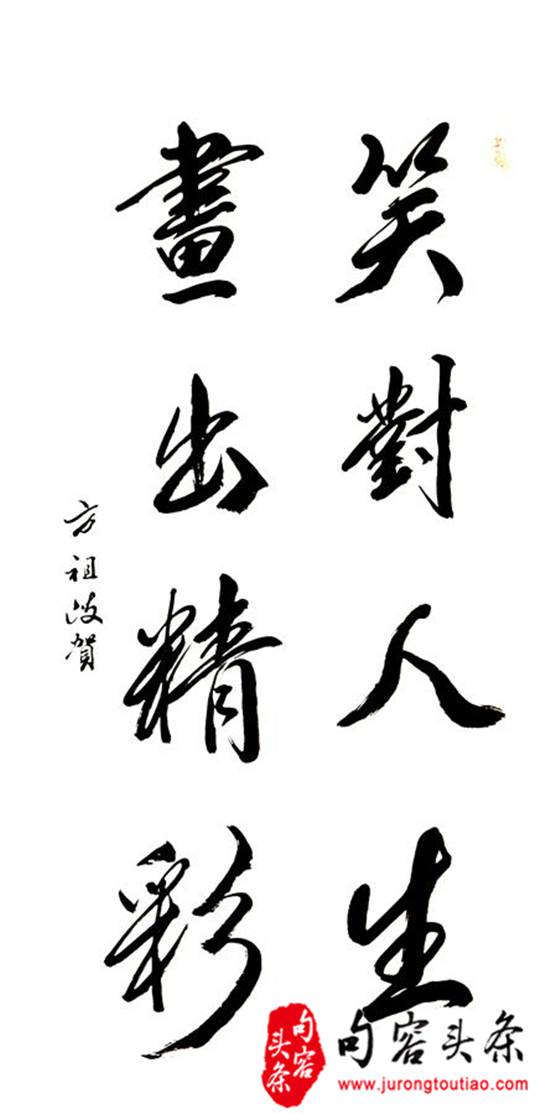 笑對人生
畫出精彩
方祖岐賀
句容头条
句容头条
www.jurongtoutiao.com